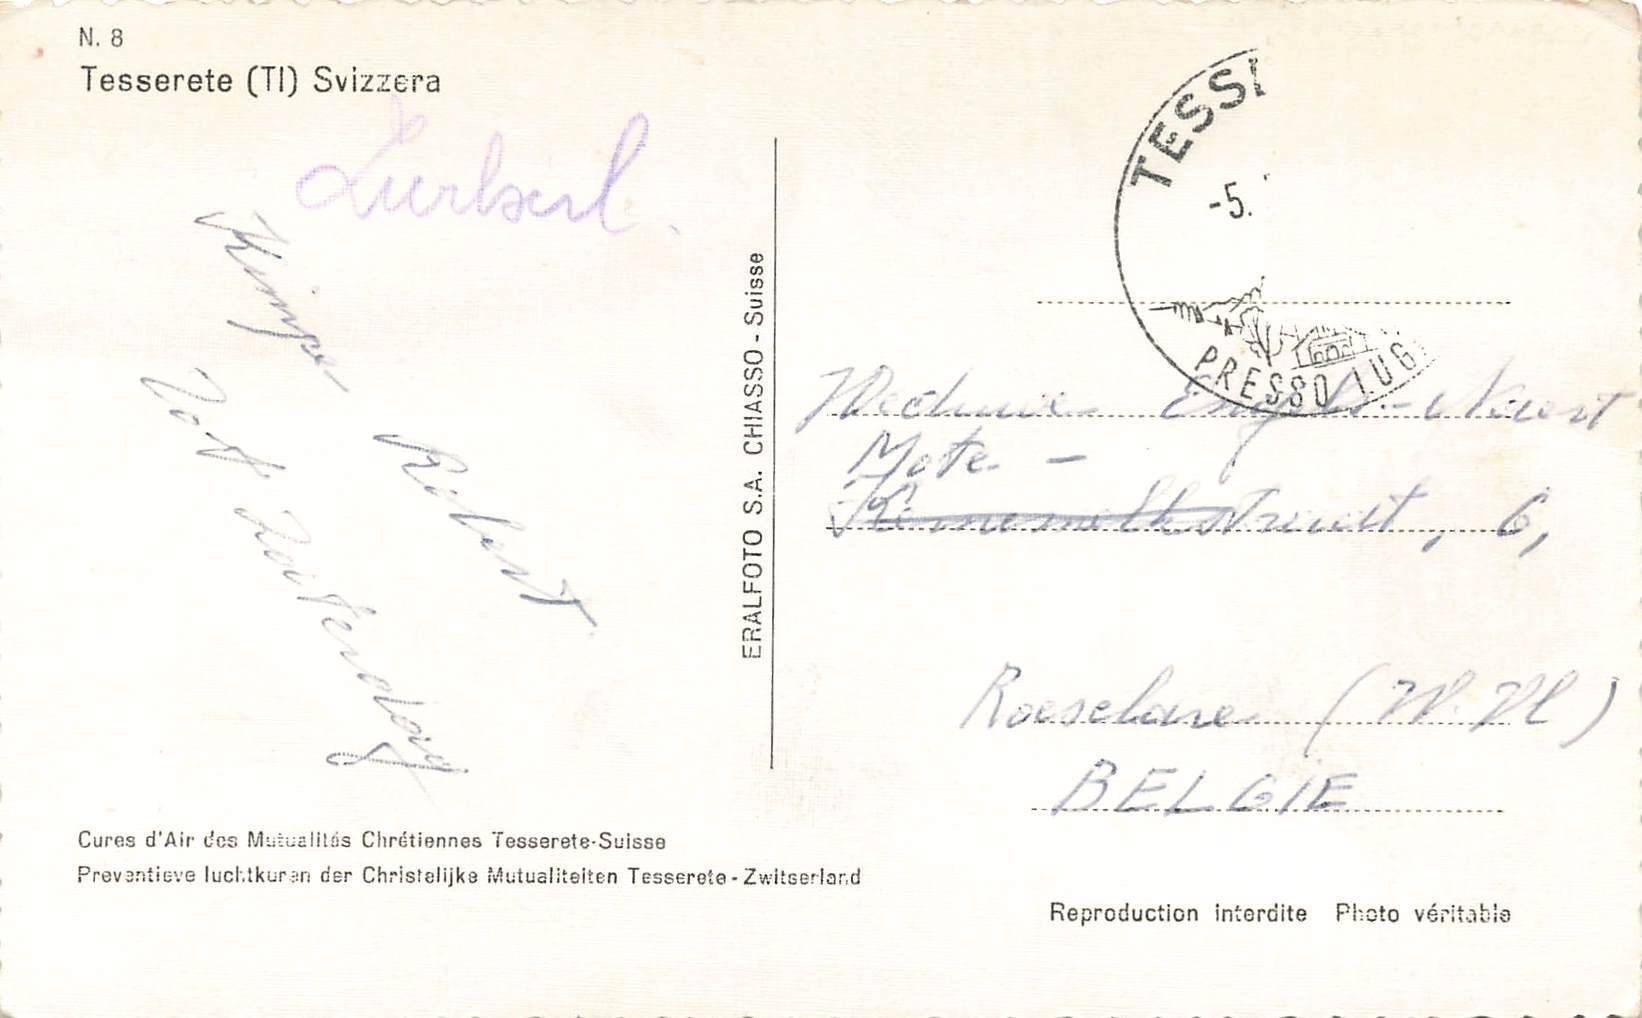 N. 8
Tesserete (TI) Svizzera
Kimpe Robert
Tot Zaterdag
ERALFOTO S.A. CHIASSO - Suisse
TESS
-5.
PRESSO LUG
Weduwe Engels - Naert
Mote -
straat, 6,
Roeselare (W. Vl)
BELGIE
Cures d'Air des Mutualités Chrétiennes Tesserete-Suisse
Preventieve luchtkuren der Christelijke Mutualiteiten Tesserete - Zwitserland
Reproduction interdite Photo véritable